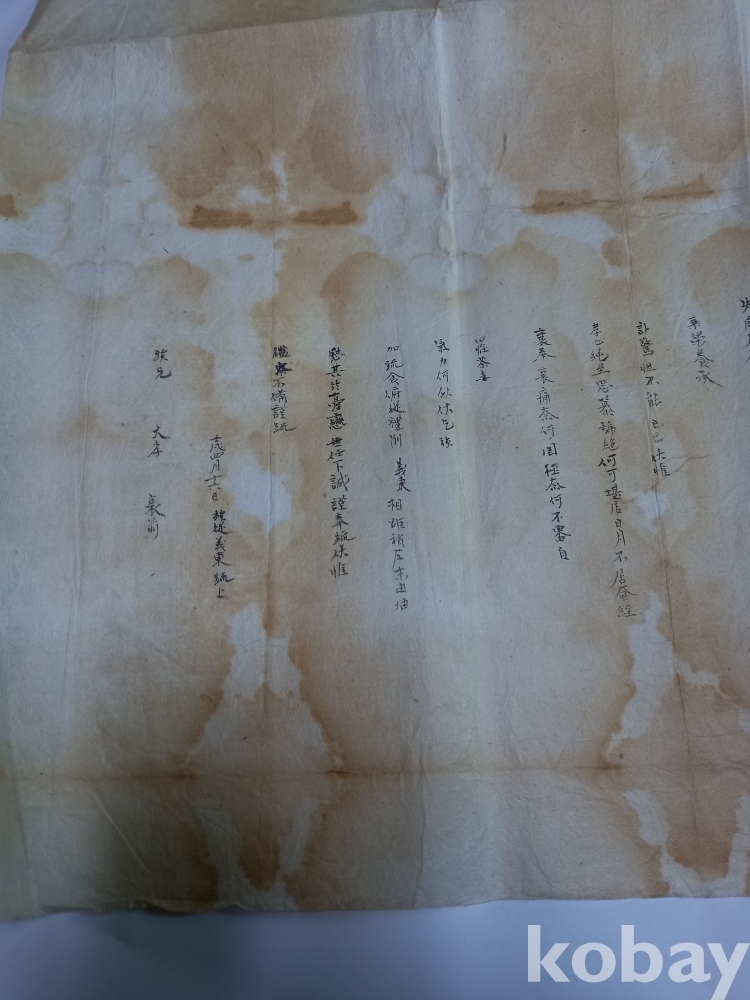 棄榮養承
訃驚怛不能已已伏惟
孝心純至思慕號絶何可堪居日月不居奄經
襄奉哀痛奈何罔極奈何不審自
罹荼毒
氣力何似伏乞强
加疏食俯從禮制 義東 相 稍左末由
慰其於憂戀無任下誠謹奉疏伏惟
鑑察不備謹疏
四月十六日 族從義東疏上
族兄 大孝 哀前
kobay